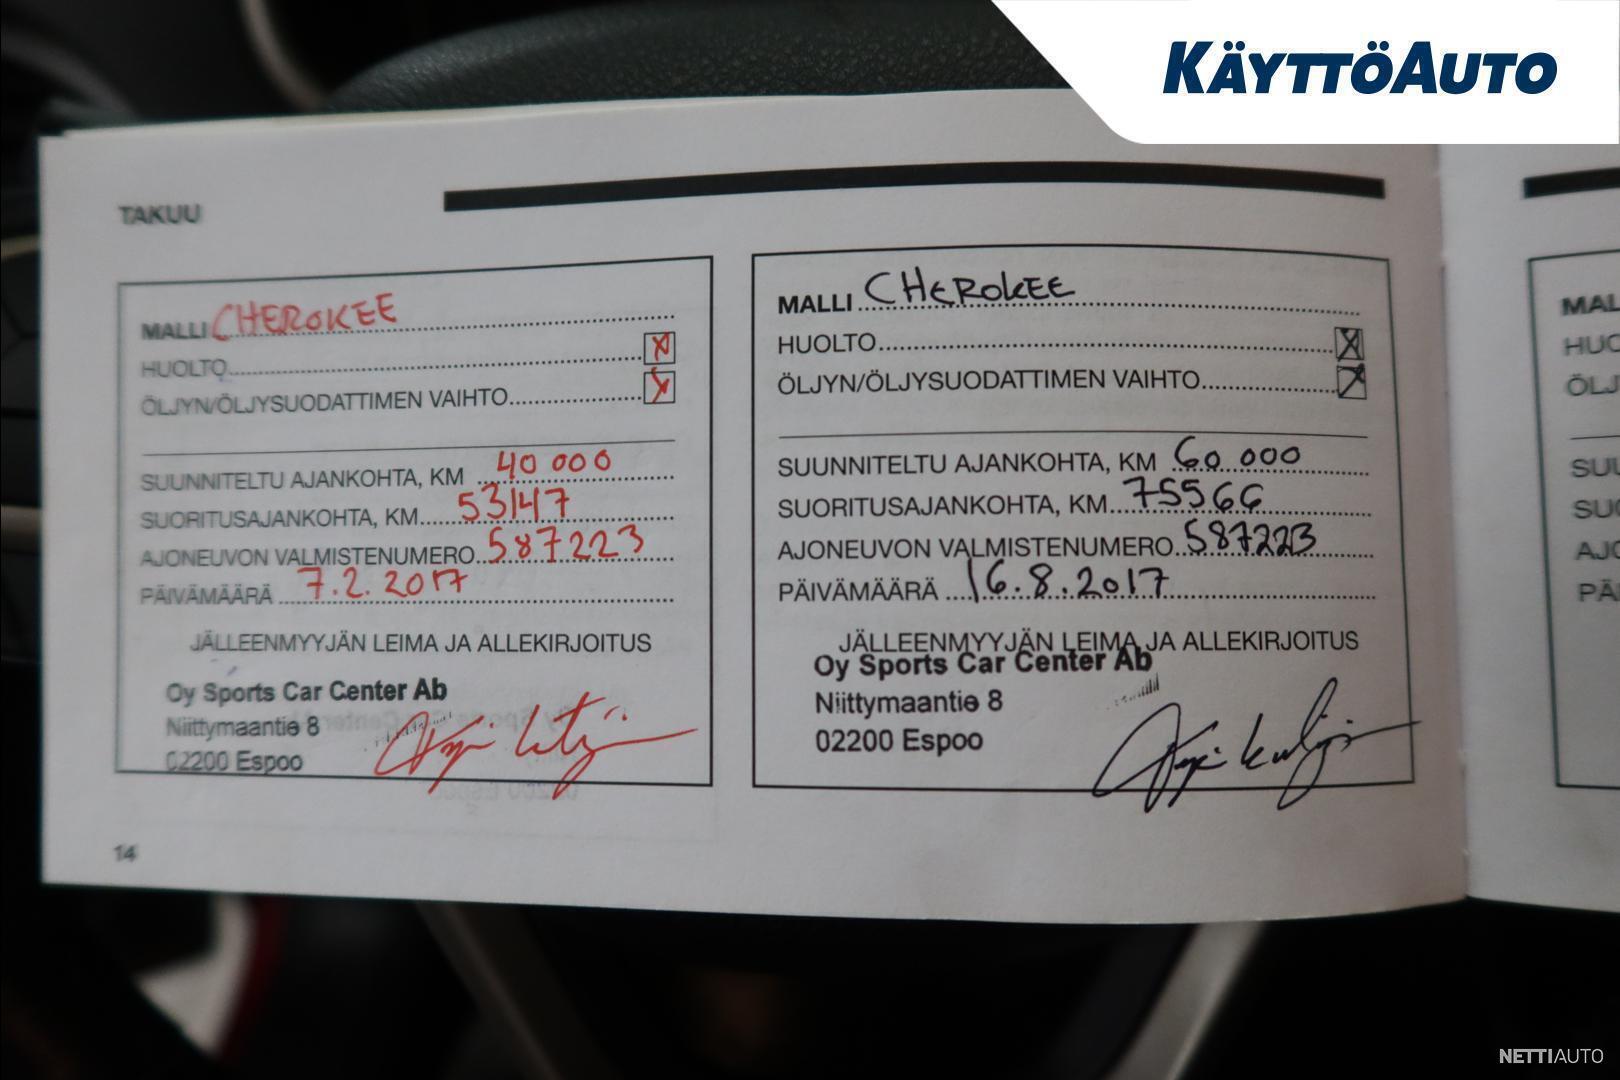 KÄYTTÖAUTO
TAKUU
MALLI CHEROKEE
HUOLTO
ÖLJYN/ÖLJYSUODATTIMEN VAIHTO
SUUNNITELTU AJANKOHTA, KM 40 000
SUORITUSAJANKOHTA, KM 53147
AJONEUVON VALMISTENUMERO 587223
PÄIVÄMÄÄRÄ 7.2.2017
JÄLLEENMYYJÄN LEIMA JA ALLEKIRJOITUS
Oy Sports Car Center Ab
Niittymaantie 8
02200 Espoo
14
MALLI CHEROKEE
HUOLTO
ÖLJYN/ÖLJYSUODATTIMEN VAIHTO
SUUNNITELTU AJANKOHTA, KM 60 000
SUORITUSAJANKOHTA, KM 75566
AJONEUVON VALMISTENUMERO 587223
PÄIVÄMÄÄRÄ 16.8.2017
JÄLLEENMYYJÄN LEIMA JA ALLEKIRJOITUS
Oy Sports Car Center Ab
Niittymaantie 8
02200 Espoo
MAL
HUO
ÖLJ
SUU
SUO
AJO
PÄI
NETTIAUTO